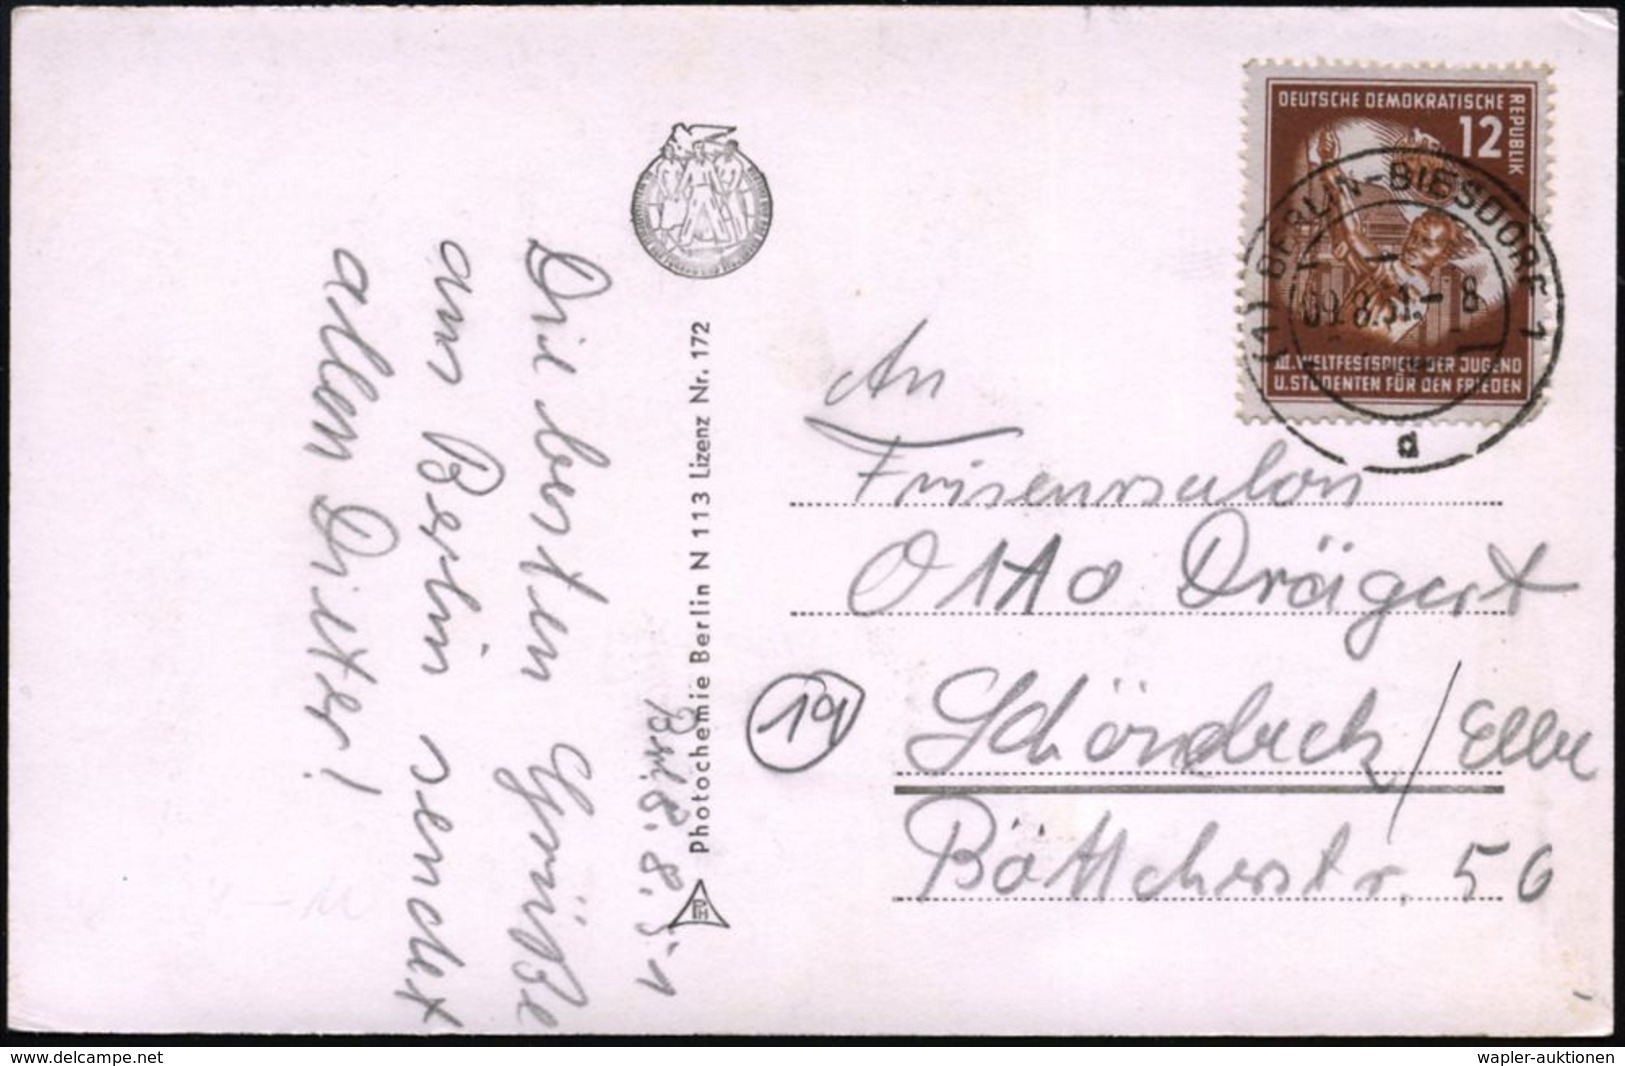 DEUTSCHE DEMOKRATISCHE
REPUBLIK
12
III. WELTFESTSPIELE DER JUGEND
U. STUDENTEN FÜR DEN FRIEDEN
(1) BERLIN-BIESDORF 1
09.8.51.-8
d
Photochemie Berlin N 113 Lizenz Nr. 172
Brl. 8.8.51
Die besten Grüße
aus Berlin sendet
allen Dieter!
An
Friseursalon
Otto Drägert
19
Schönebeck/Elbe
Böttcherstr. 56
www.delcampe.net
wapler-auktionen